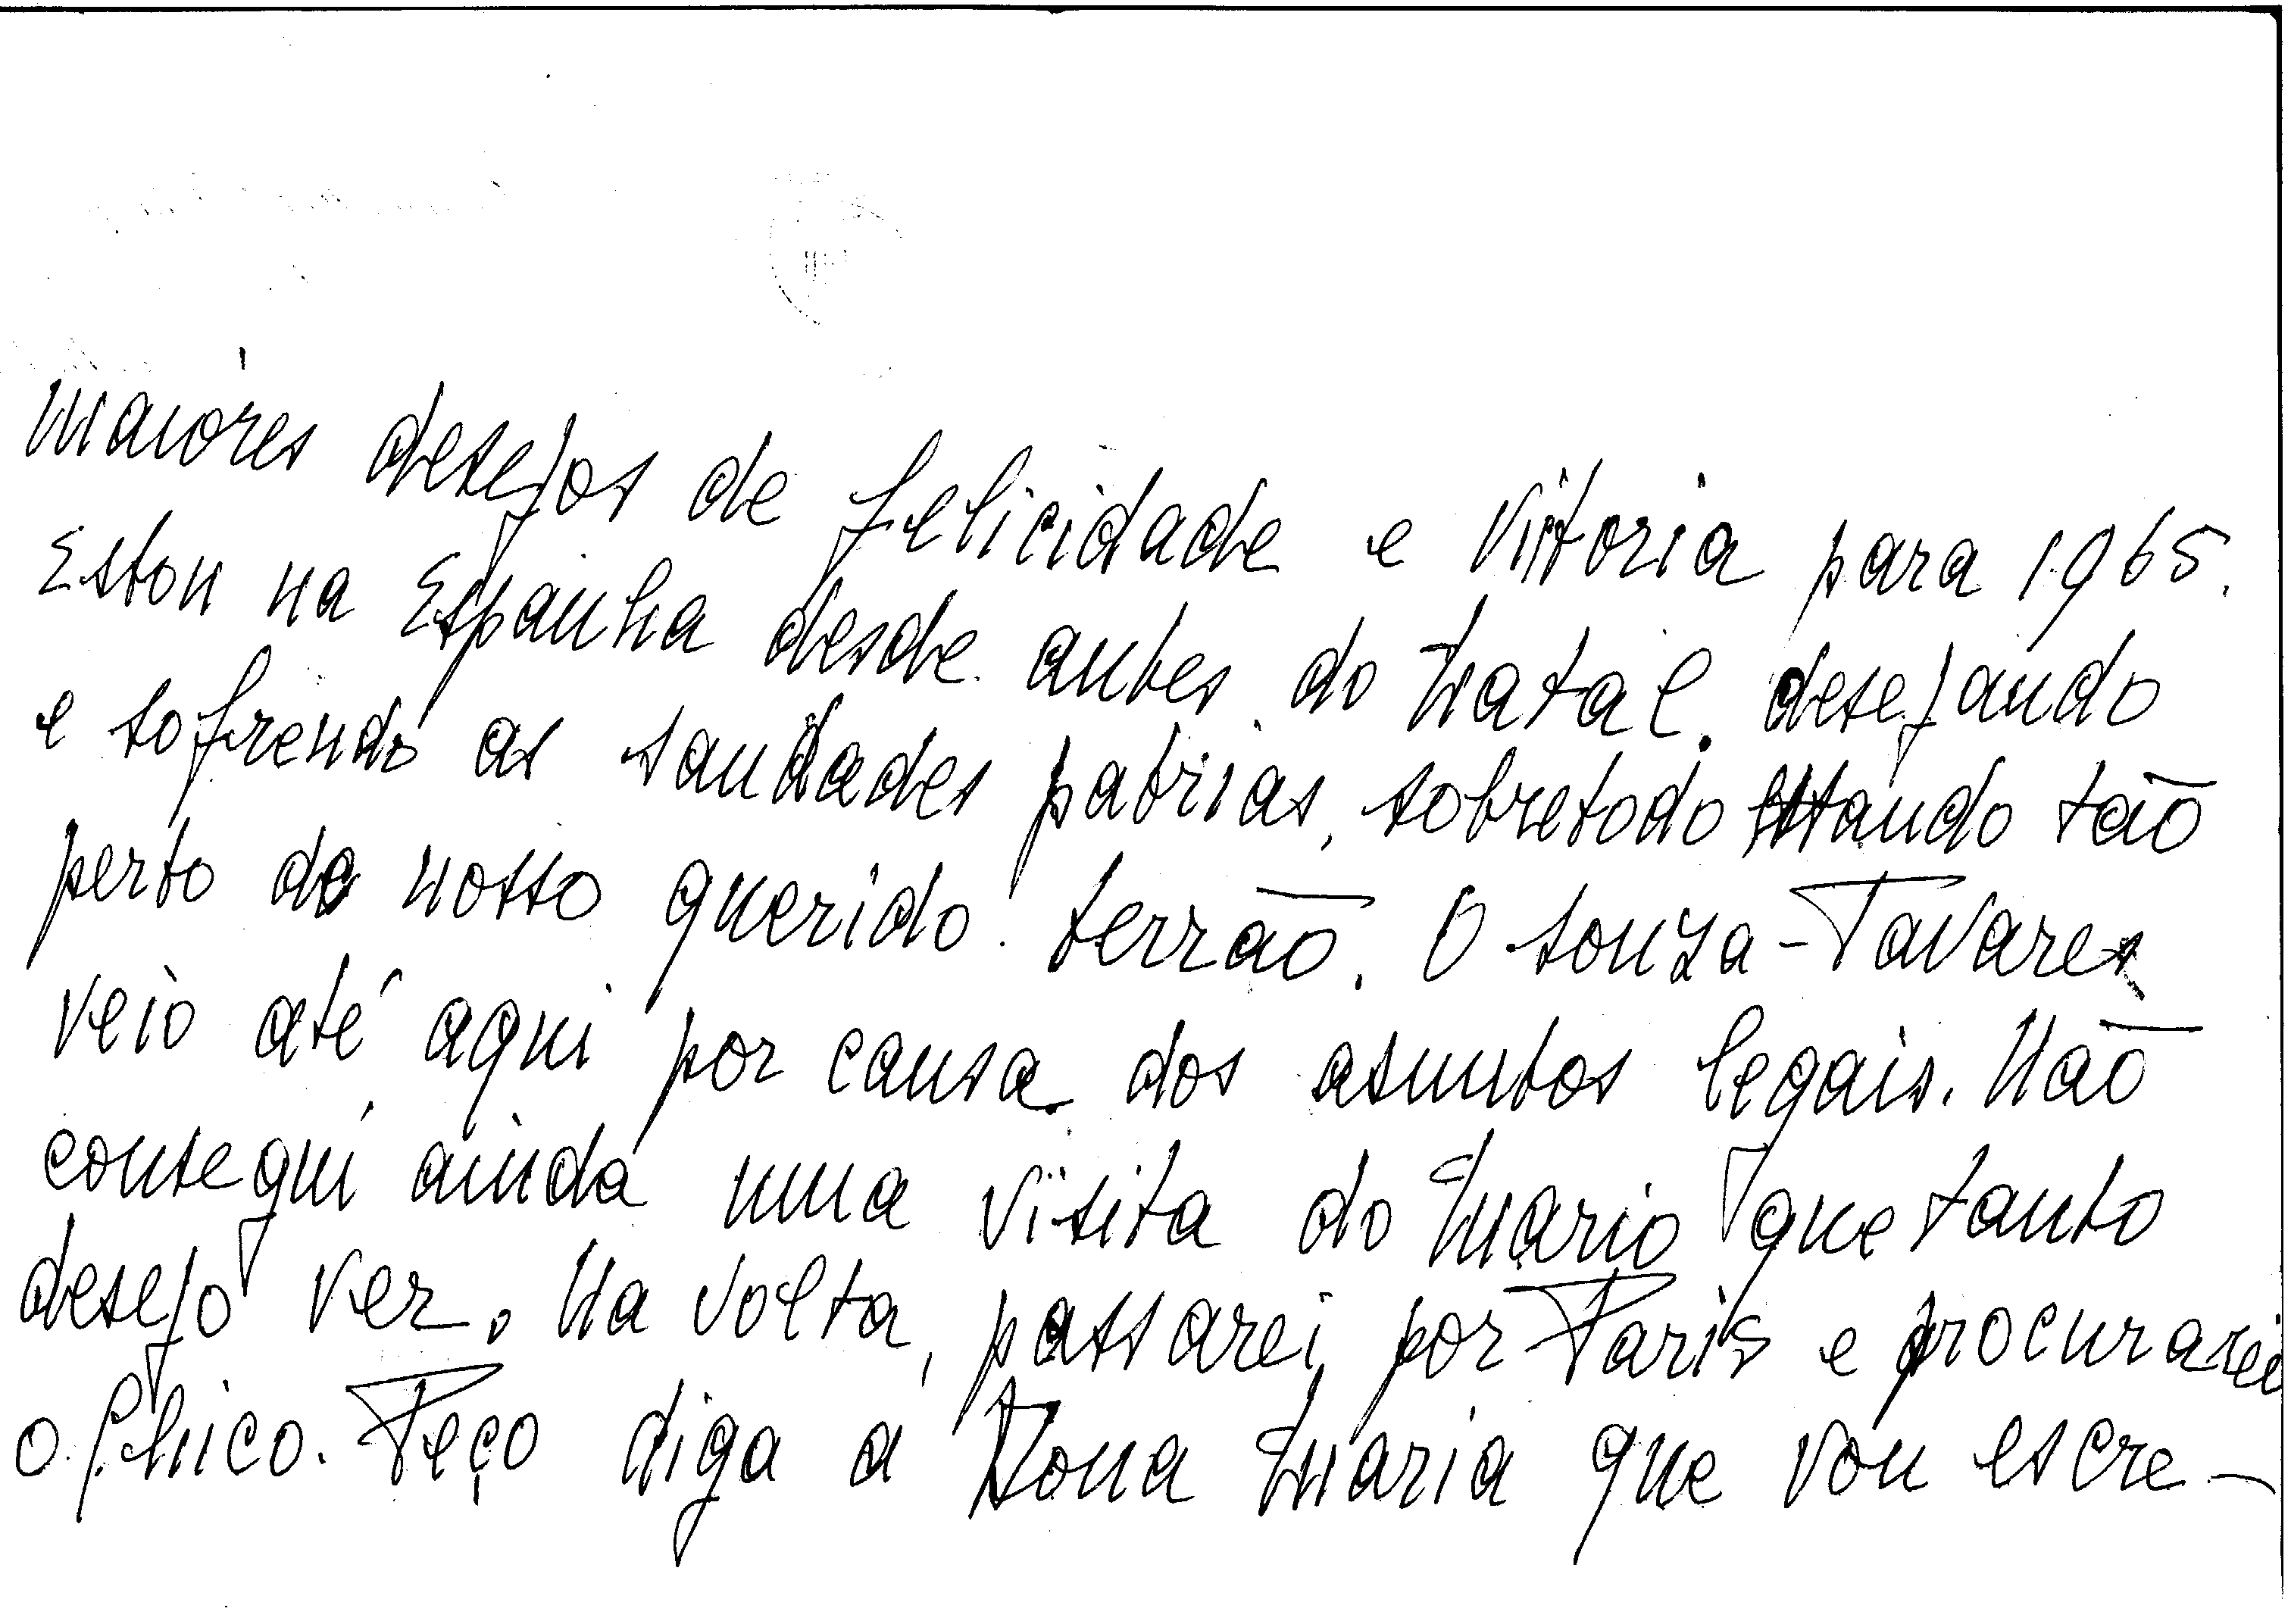 maiores desejos de felicidade e vitoria para 1965.
Estou na Espanha desde antes do Natal. desejando
e sofrendo as saudades patrias, sobretodo estando tão
perto do nosso querido terrão. O Souza-Tavares
veio até aqui por causa dos asuntos legais. Não
consegui ainda uma visita do Mario que tanto
desejo ver. Na volta, passarei por Paris e procurarei
o Chico. Peço diga a Dona Maria que vou escre-